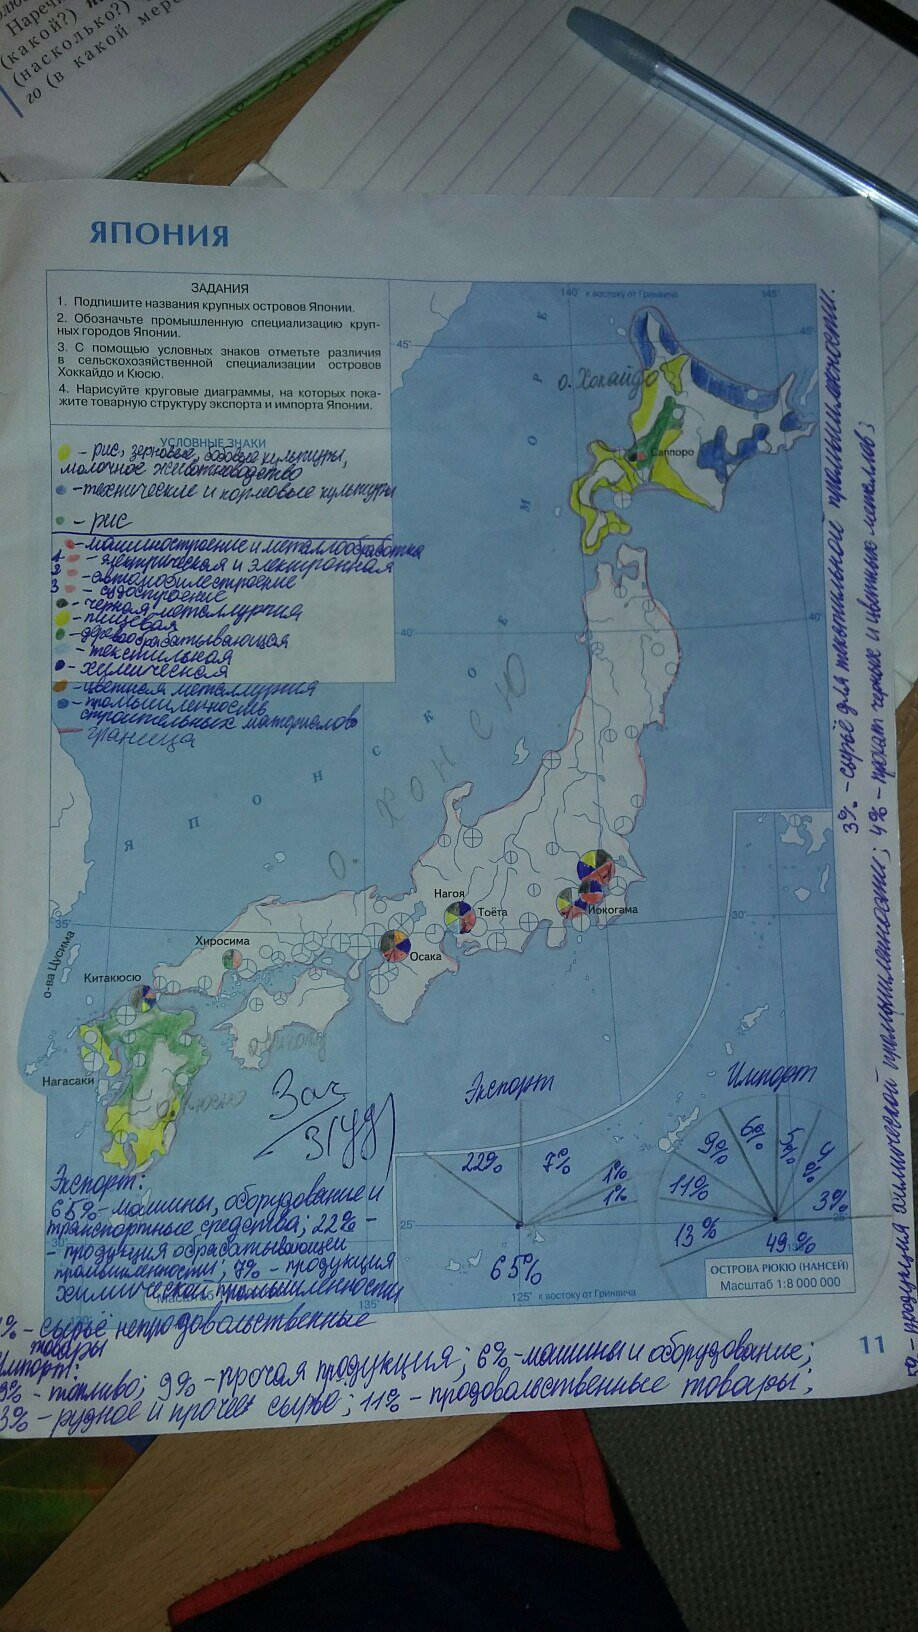 Наречи
(какой?)
(насколько?)
го (в какой мере
ЯПОНИЯ
ЗАДАНИЯ
1. Подпишите названия крупных островов Японии.
2. Обозначьте промышленную специализацию круп-
ных городов Японии.
3. С помощью условных знаков отметьте различия
в сельскохозяйственной специализации островов
Хоккайдо и Кюсю.
4. Нарисуйте круговые диаграммы, на которых пока-
жите товарную структуру экспорта и импорта Японии.
УСЛОВНЫЕ ЗНАКИ
- рис, зерновые, бобовые культуры,
молочное животноводство
- технические и кормовые культуры
- рис
- машиностроение и металлообработка
1 - электрическая и электронная
2 - автомобилестроение
3 - судостроение
- черная металлургия
- пищевая
- деревообрабатывающая
- текстильная
- химическая
- цветная металлургия
- промышленность
строительных материалов
- граница
140° к востоку от Гринвича
145°
45°
45°
о. Хокайдо
Саппоро
40°
40°
ЯПОНСКОЕ МОРЕ
о. Хонсю
35°
30°
о-ва Цусима
Нагоя
Тоёта
Иокогама
Хиросима
Осака
Китакюсю
Нагасаки
о. Кюсю
Зач
Экспорт
22%
7%
1%
1%
65%
Импорт
9%
6%
5%
4%
3%
11%
13%
49%
25°
125° к востоку от Гринвича
135°
ОСТРОВА РЮКЮ (НАНСЕЙ)
Масштаб 1:8 000 000
11
Экспорт:
65% - машины, оборудование и
транспортные средства; 22% -
- продукция обрабатывающей
промышленности; 7% - продукция
химической промышленности
% - сырьё непродовольственные
товары
мпорт:
9% - топливо; 9% - прочая продукция; 6% - машины и оборудование;
3% - рудное и прочее сырьё; 11% - продовольственные товары;
- продукция химической промышленности; 4% - прокат черных и цветных металлов;
3% - сырьё для текстильной промышленности.